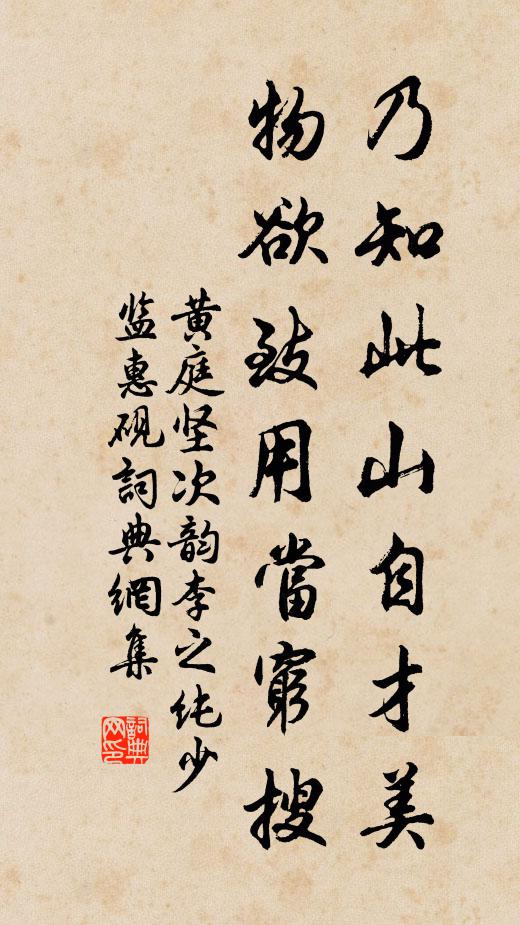 乃知此山自才美
物欲致用當窮搜
黄庭坚次韵李之纯少
监惠砚詞典網集
詞典
网印